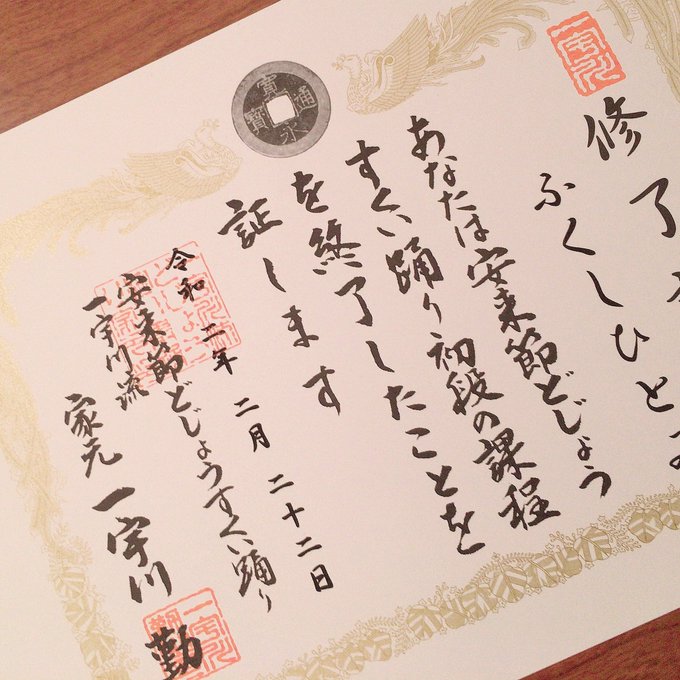 修了
ふくしひとみ
あなたは安来節どじょう
すくい踊り初段の課程
を終了したことを
証します
令和二年二月二十二日
安来節どじょうすくい踊り
一宇川流
家元 一宇川 勤
寛永通寳